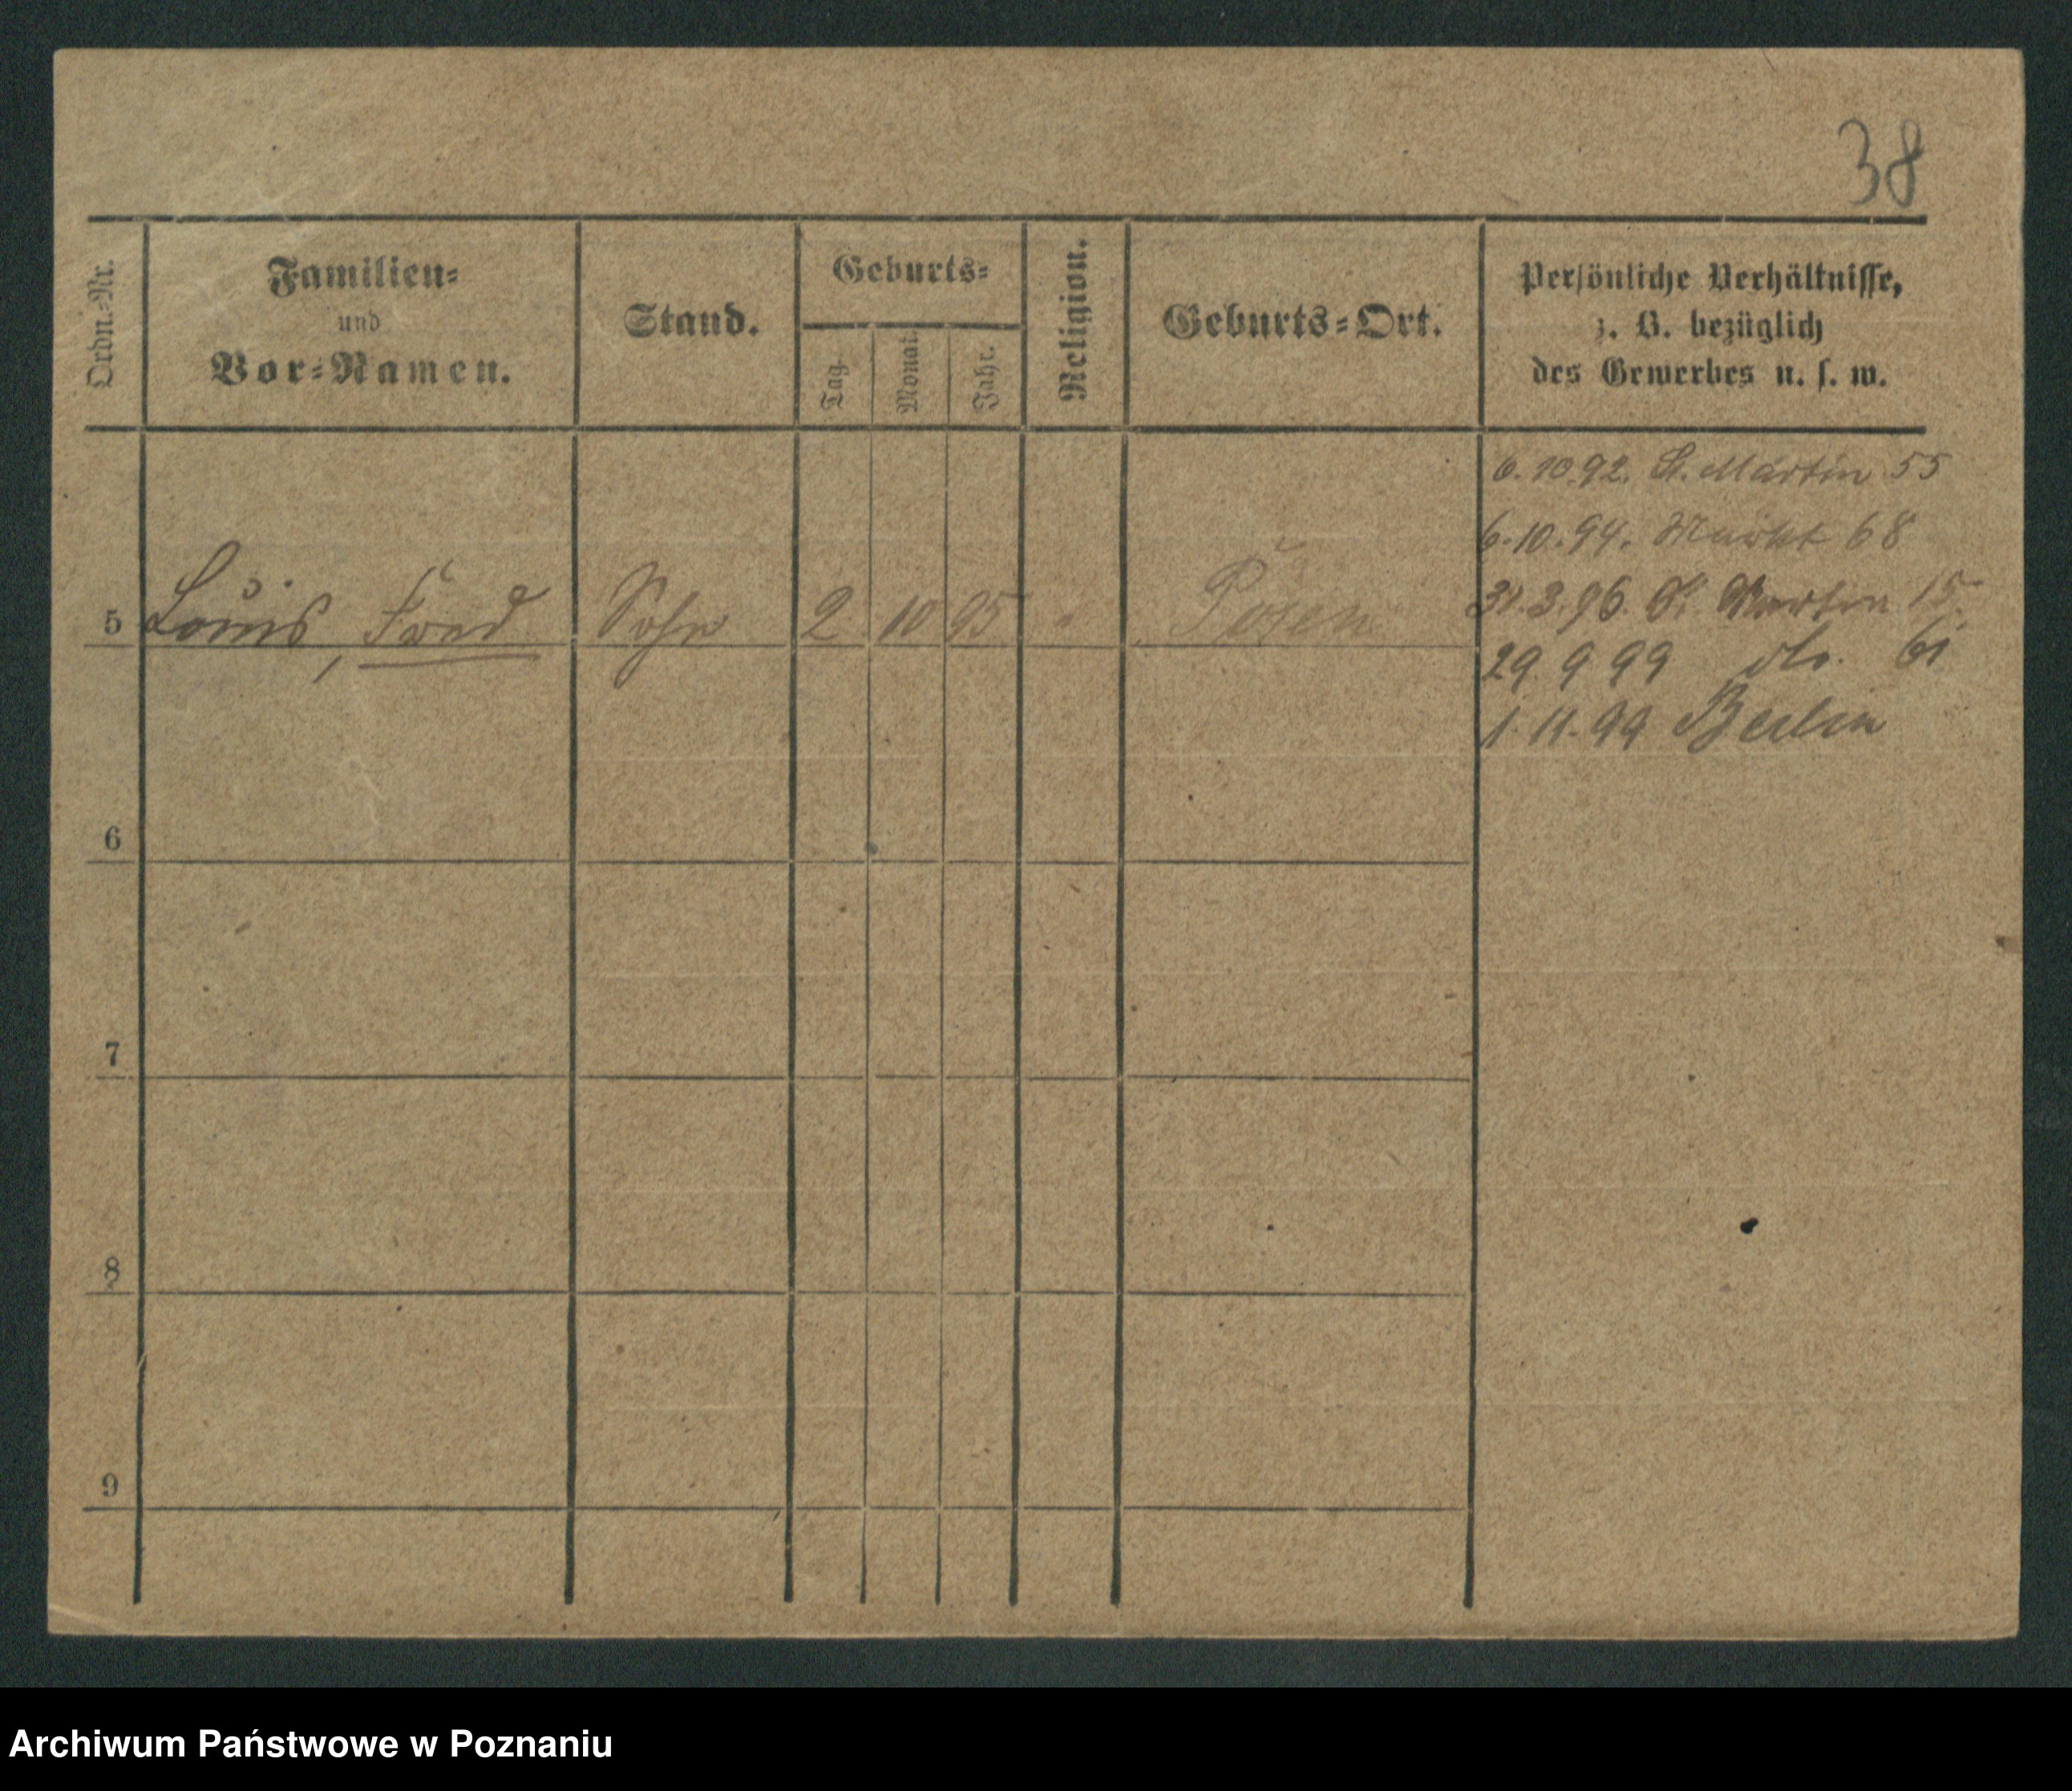 38
Ordn.-Nr.
Familien-
und
Vor-Namen.
Stand.
Geburts-
Tag.
Monat.
Jahr.
Religion.
Geburts-Ort.
Persönliche Verhältnisse,
z. B. bezüglich
des Gewerbes u. s. w.
6.10.92. St. Martin 55
6.10.94. Markt 68
5 Louis, Fred Sohn 2 10 95 " Posen
31.3.96. St. Martin 15.
29 9 99 do. 61
1.11.99 Berlin
6
7
8
9
Archiwum Państwowe w Poznaniu